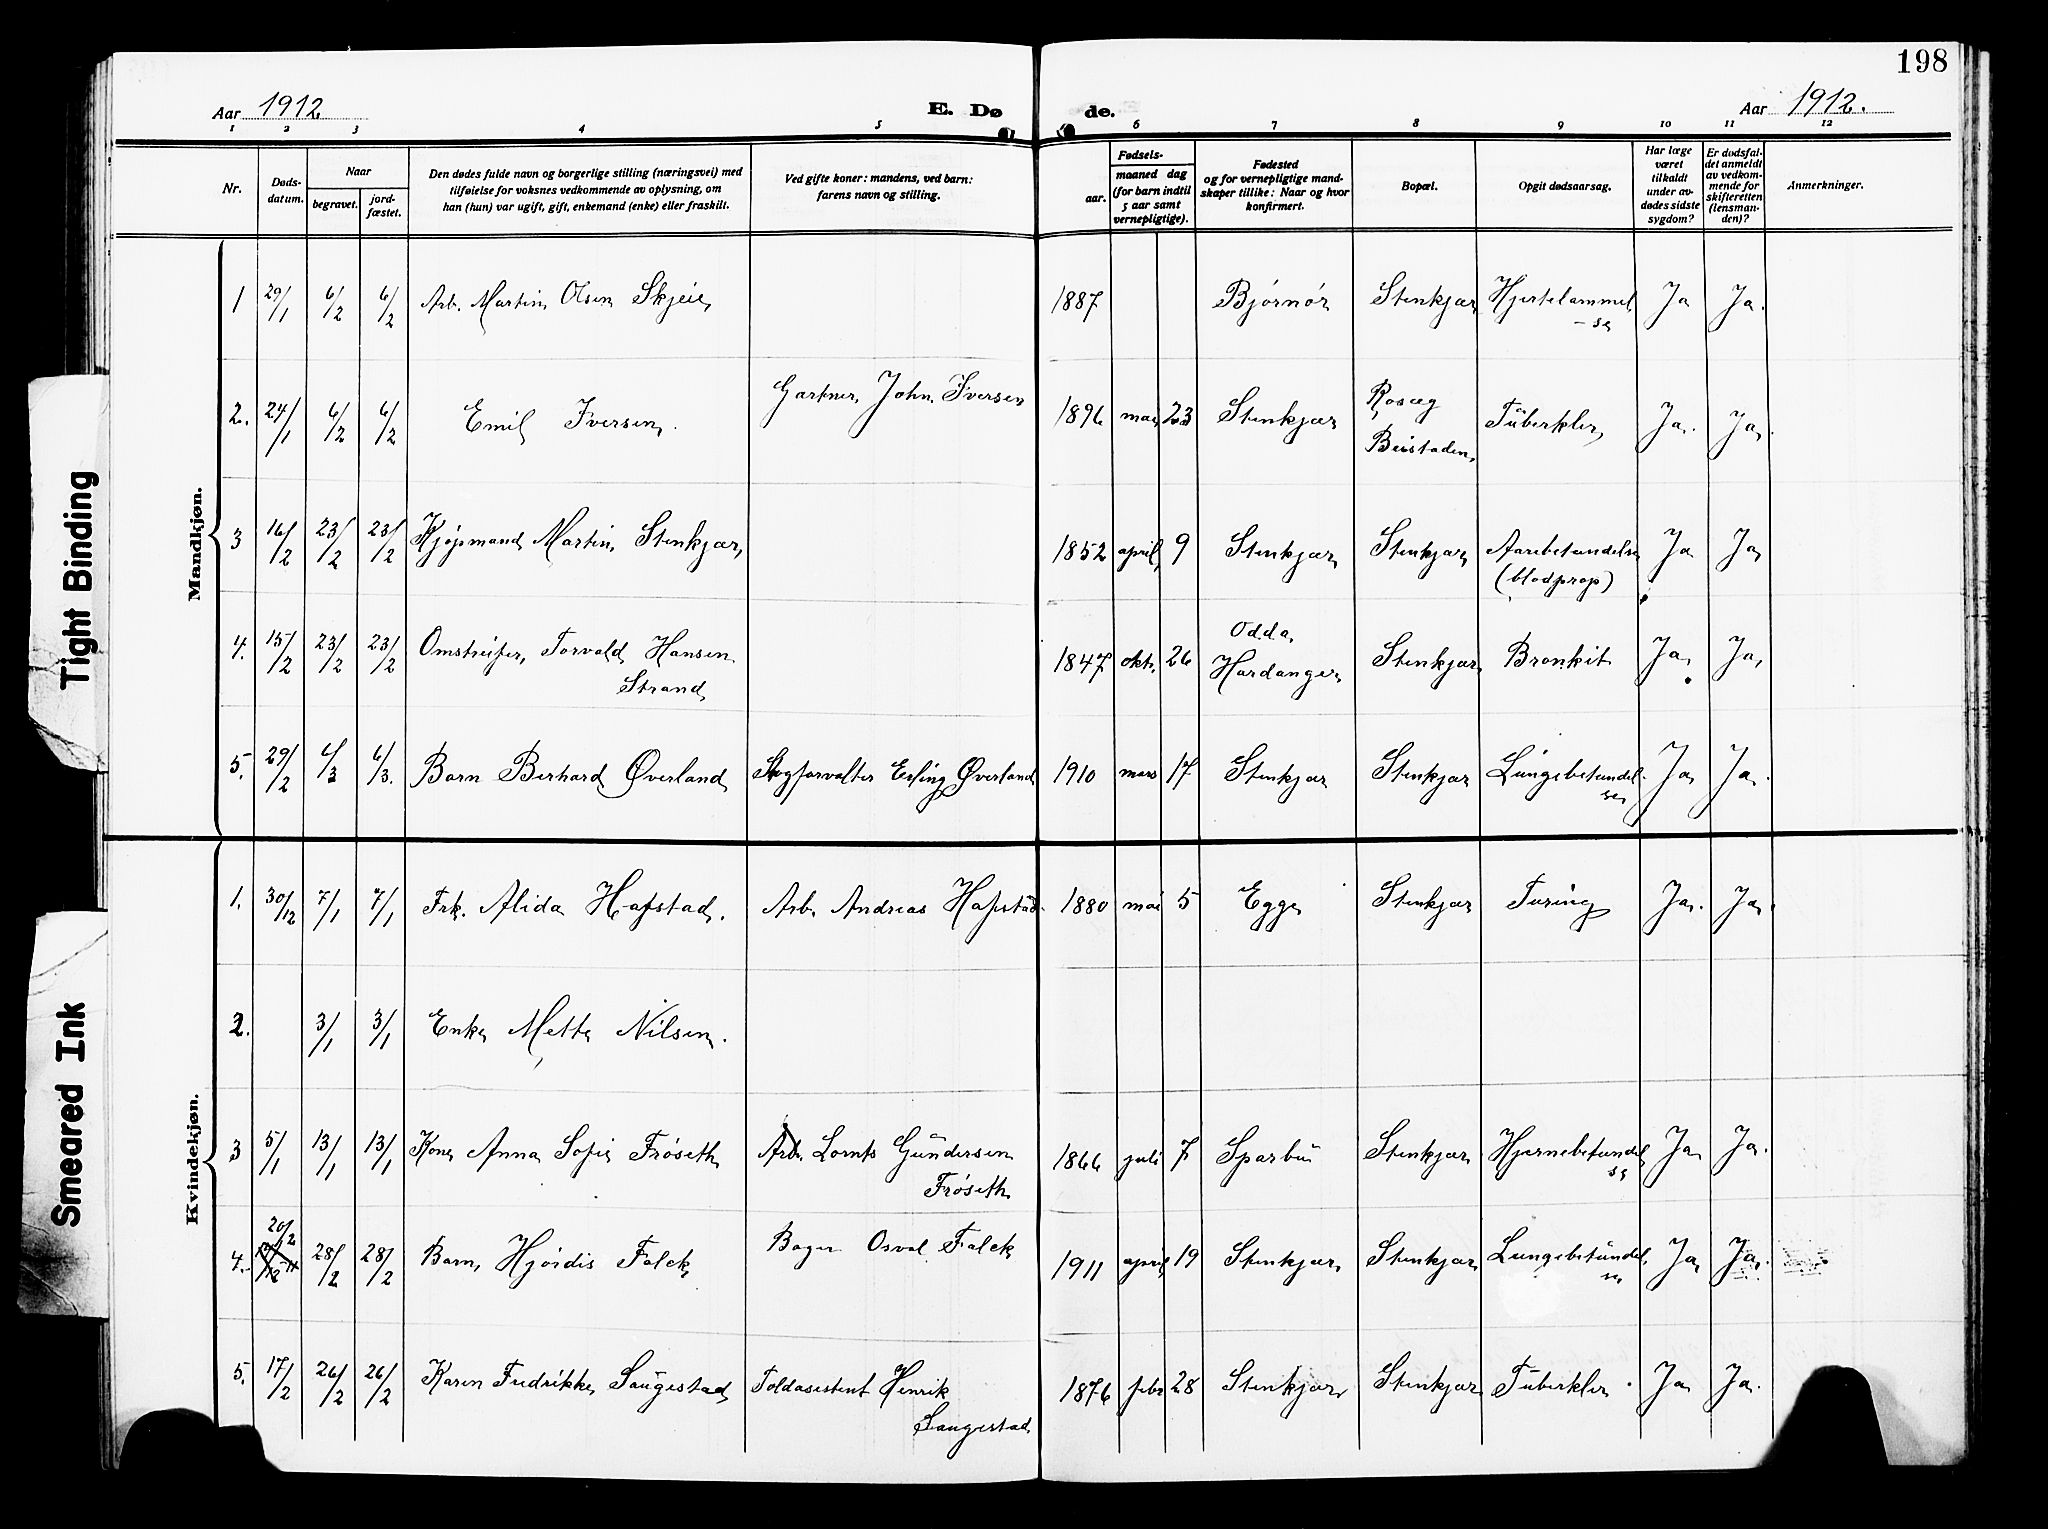 198
Aar 1912. E. Dø de. Aar 1912.
1 2 3 4 5 6 7 8 9 10 11 12
Nr. Døds-datum. Naar begravet. jord-fæstet. Den dødes fulde navn og borgerlige stilling (næringsvei) med tilføielse for voksnes vedkommende av oplysning, om han (hun) var ugift, gift, enkemand (enke) eller fraskilt. Ved gifte koner: mandens, ved barn: farens navn og stilling. Fødsels- aar. maaned dag (for barn indtil 5 aar samt vernepligtige). Fødested og for vernepligtige mand-skaper tillike: Naar og hvor konfirmert. Bopæl. Opgit dødsaarsag. Har læge været tilkaldt under av-dødes sidste sygdom? Er dødsfal-det anmeldt av vedkom-mende for skifteretten (lensman-den)? Anmerkninger.
Tight Binding
Smeared Ink
Mandkjøn.
1 29/1 6/2 6/2 Arb. Martin Olsen Skjeie 1887 Bjørnør Stenkjær Hjertelammel-se Ja Ja.
2. 24/1 6/2 6/2 Emil Iversen. Gartner John Iversen 1896 mai 23 Stenkjær Rosæg Beistaden Tuberkler Ja. Ja.
3 16/2 23/2 23/2 Kjøpmand Martin Stenkjær 1852 april 9 Stenkjær Stenkjær Aarebetændelse (blodprop) Ja Ja
4. 15/2 23/2 23/2 Omstreifer Torvald Hansen Strand 1847 okt. 26 Odda Hardanger Stenkjær Bronkit Ja Ja
5. 29/2 6/3 6/3. Barn Berhard Øverland Skogforvalter Erling Øverland 1910 mars 17 Stenkjær Stenkjær Lungebetændelse Ja Ja.
Kvindekjøn.
1. 30/12 7/1 7/1 Frk. Alida Hafstad. Arb. Andreas Hafstad. 1880 mai 5 Egge Stenkjær Turing Ja. Ja.
2. 3/1 3/1 Enke Mette Nilsen.
3 5/1 13/1 13/1 Kone Anna Sofie Frøseth Arb. Lornts Gundersen Frøseth 1866 juli 7 Sparbu Stenkjær Hjernebetændelse Ja Ja.
4. 20/2 28/2 28/2 Barn Hjørdis Falck Bager Osval Falck 1911 april 19 Stenkjær Stenkjær Lungebetændelse Ja Ja.
5. 17/2 26/2 26/2 Karen Fredrikke Saugestad Toldassistent Henrik Saugestad 1876 febr 28 Stenkjær Stenkjær Tuberkler. Ja Ja.